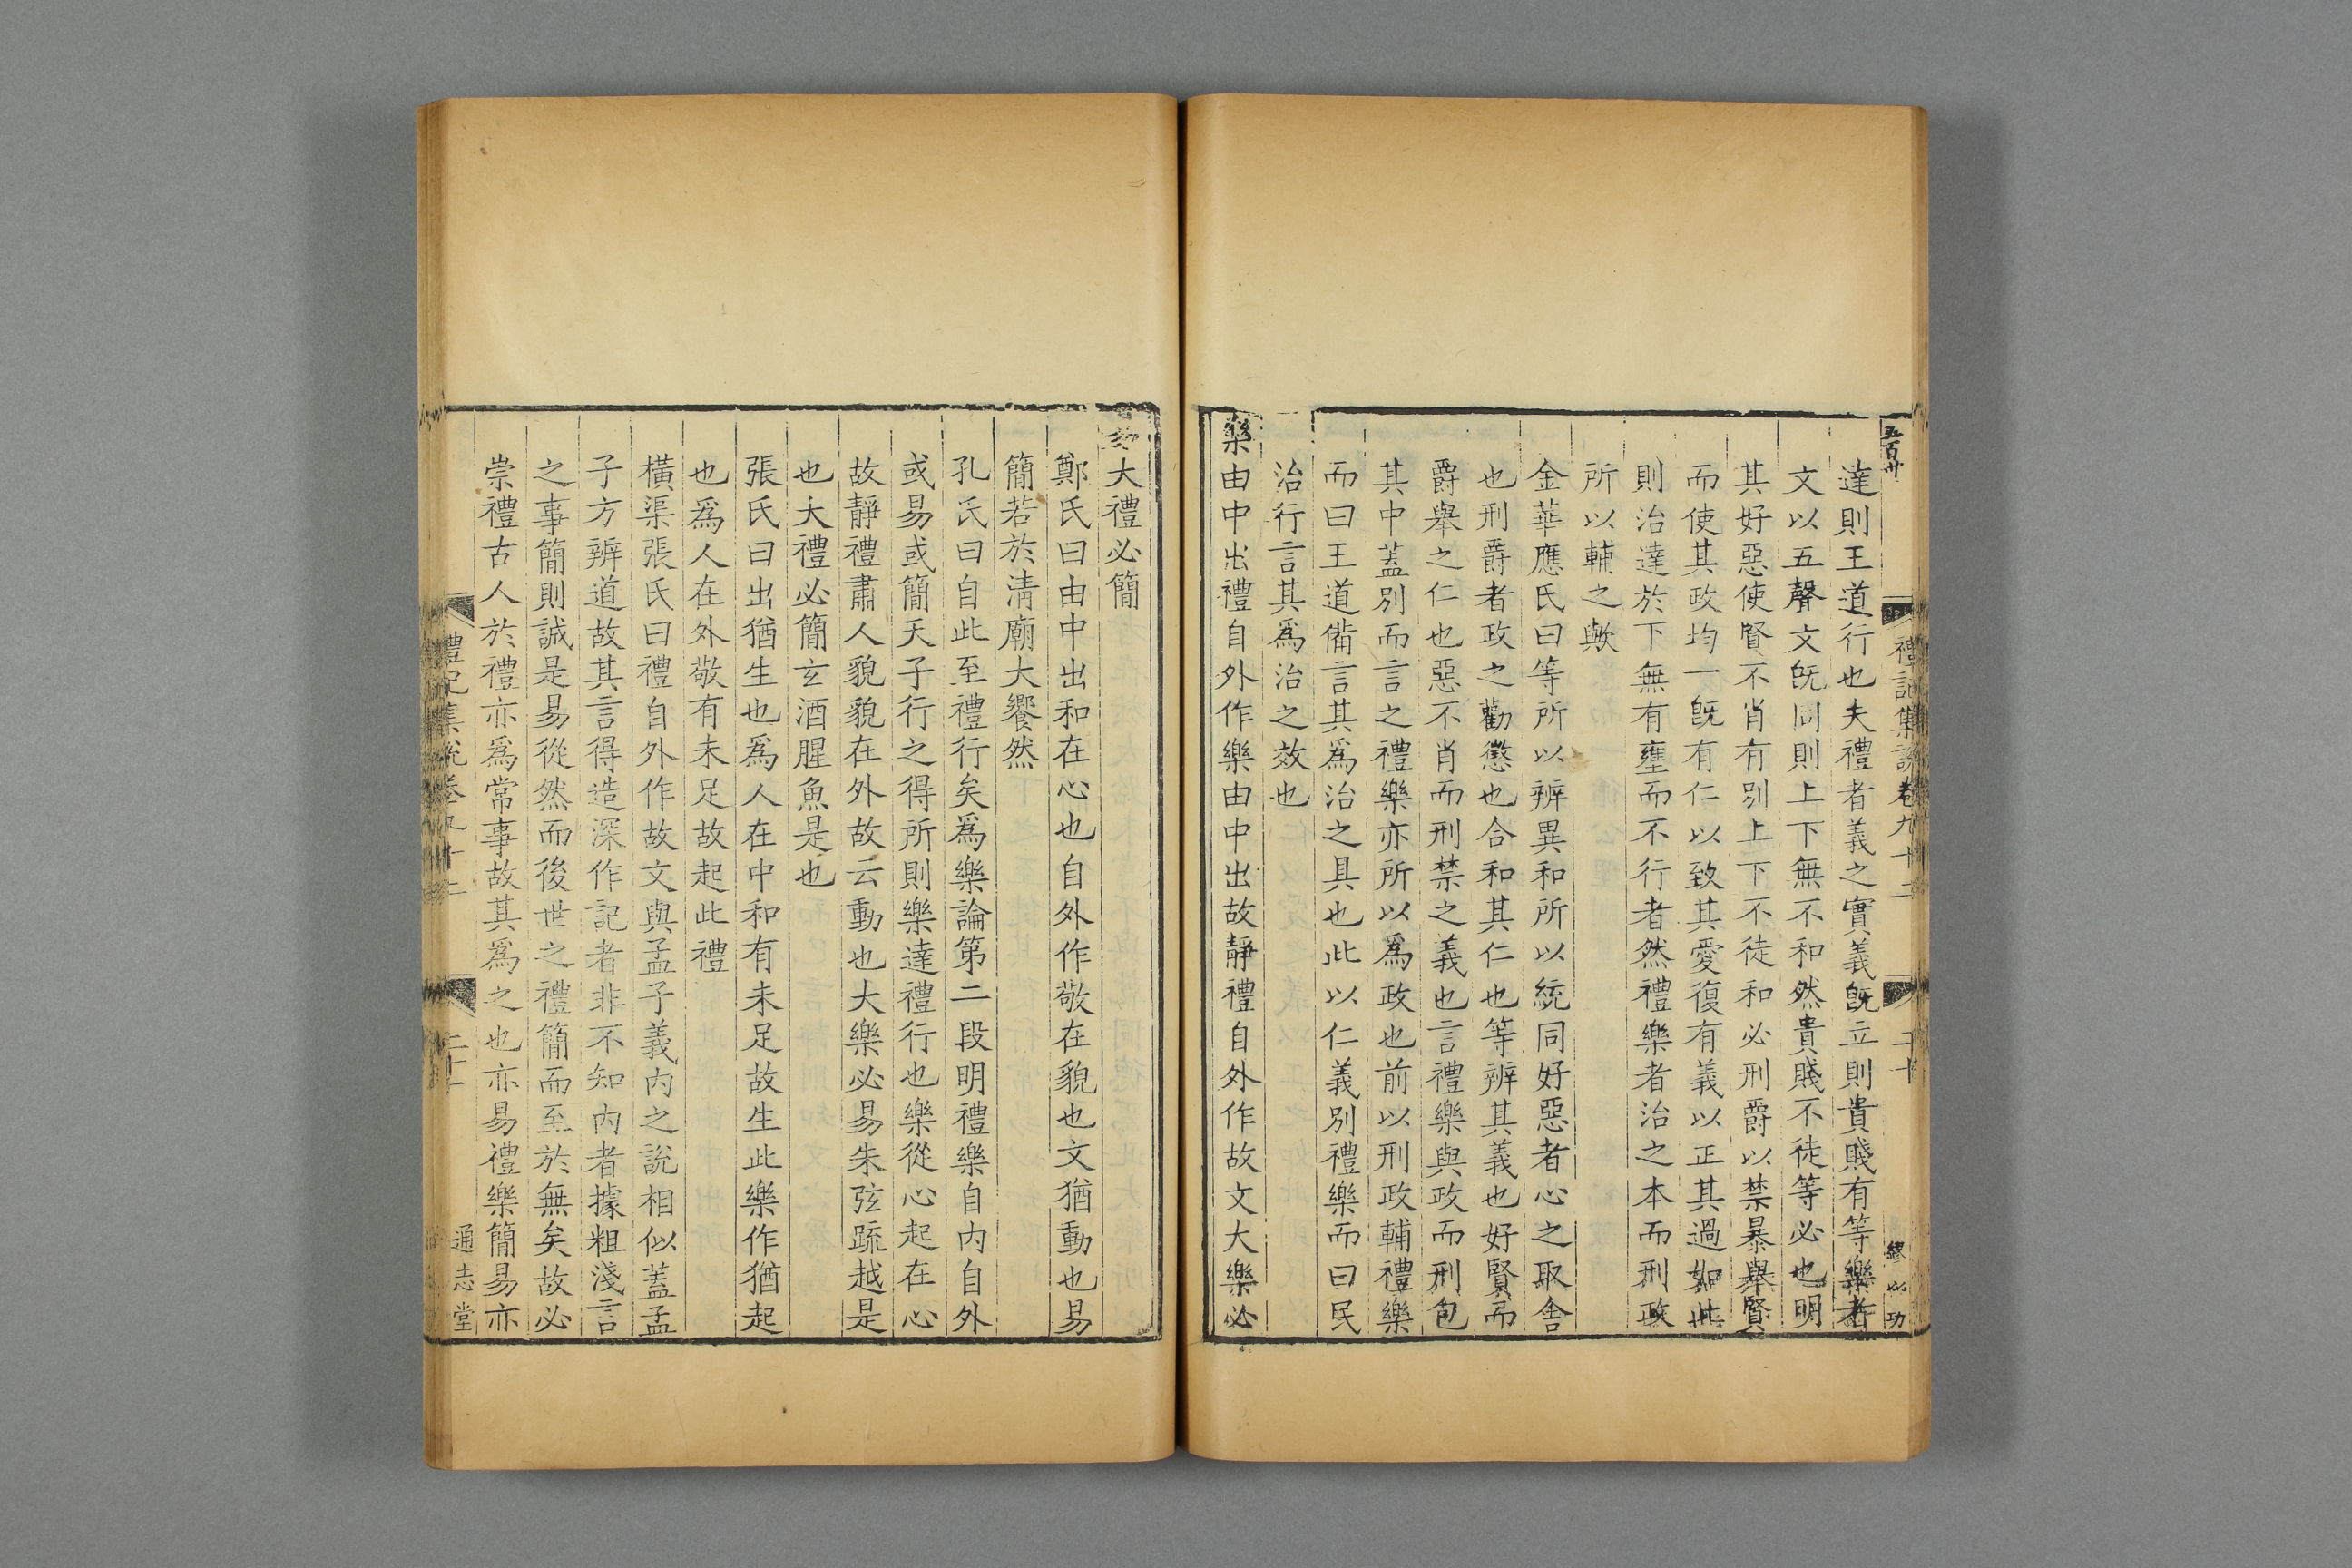 五百卅
禮記集說卷九十二
二十
繆以功
達則王道行也夫禮者義之實義旣立則貴賤有等樂者
文以五聲文旣同則上下無不和然貴賤不徒等必也明
其好惡使賢不肖有別上下不徒和必刑爵以禁暴舉賢
而使其政均一旣有仁以致其愛復有義以正其過如此
則治達於下無有壅而不行者然禮樂者治之本而刑政
所以輔之歟
金華應氏曰等所以辨異和所以統同好惡者心之取舍
也刑爵者政之勸懲也合和其仁也等辨其義也好賢而
爵舉之仁也惡不肖而刑禁之義也言禮樂與政而刑包
其中蓋別而言之禮樂亦所以爲政也前以刑政輔禮樂
而曰王道備言其爲治之具也此以仁義別禮樂而曰民
治行言其爲治之效也
樂由中出禮自外作樂由中出故靜禮自外作故文大樂必
大禮必簡
鄭氏曰由中出和在心也自外作敬在貌也文猶動也易
簡若於清廟大饗然
孔氏曰自此至禮行矣爲樂論第二段明禮樂自内自外
或易或簡天子行之得所則樂達禮行也樂從心起在心
故靜禮肅人貌貌在外故云動也大樂必易朱弦疏越是
也大禮必簡玄酒腥魚是也
張氏曰出猶生也爲人在中和有未足故生此樂作猶起
也爲人在外敬有未足故起此禮
橫渠張氏曰禮自外作故文與孟子義内之說相似蓋孟
子方辨道故其言得造深作記者非不知内者據粗淺言
之事簡則誠是易從然而後世之禮簡而至於無矣故必
崇禮古人於禮亦爲常事故其爲之也亦易禮樂簡易亦
禮記集說卷九十二
通志堂